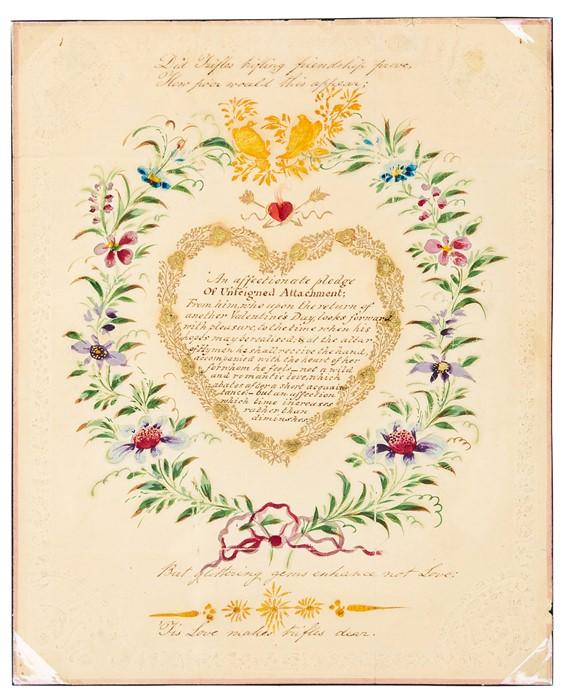 Did Trifles trifling friendship prove,
How poor would this appear;
An affectionate pledge
Of Unfeigned Attachment;
From him, who upon the return of
another Valentine's Day, looks forward
with pleasure, to the time when his
hopes may be realised; & at the altar
of Hymen he shall receive the hand,
accompanied with the heart of her
for whom he feels — not a wild
and romantic love, which
abates after a short acquain
tance — but an affection
which time increases
rather than
diminshes.
But glittering gems enhance not Love:
Tis Love makes trifles dear.